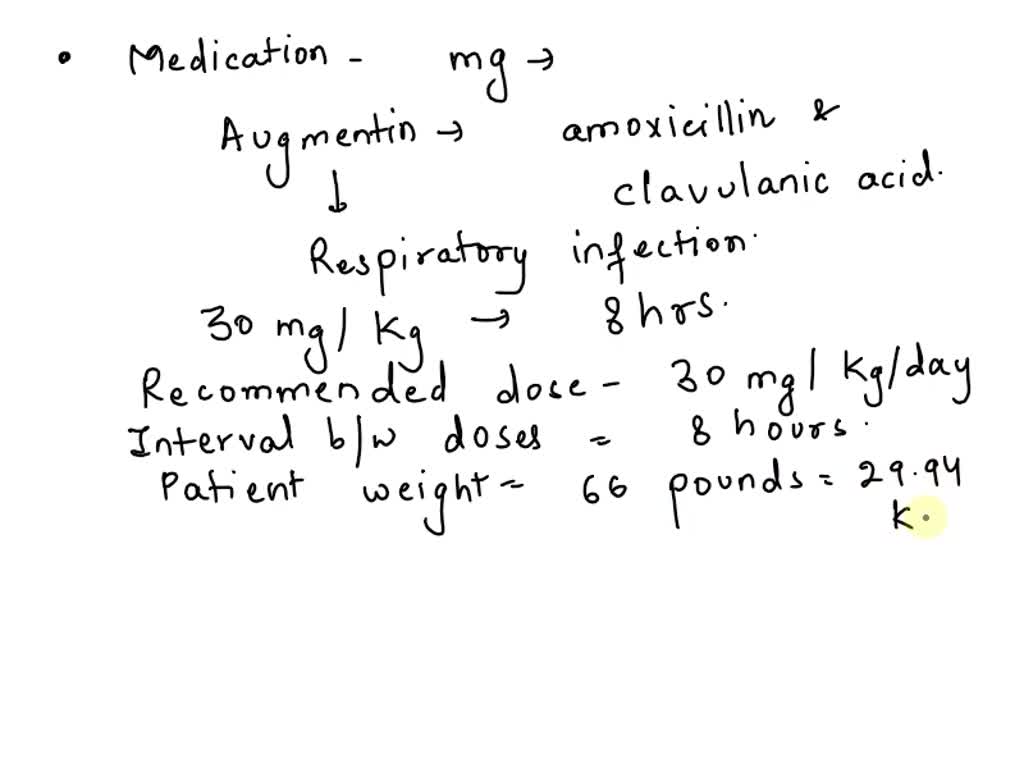 • Medication - mg →
Augmentin → amoxicillin &
↓ clavulanic acid.
Respiratory infection.
30 mg/Kg → 8 hrs.
Recommended dose - 30 mg/Kg/day
Interval b/w doses = 8 hours.
Patient weight = 66 pounds = 29.94
K